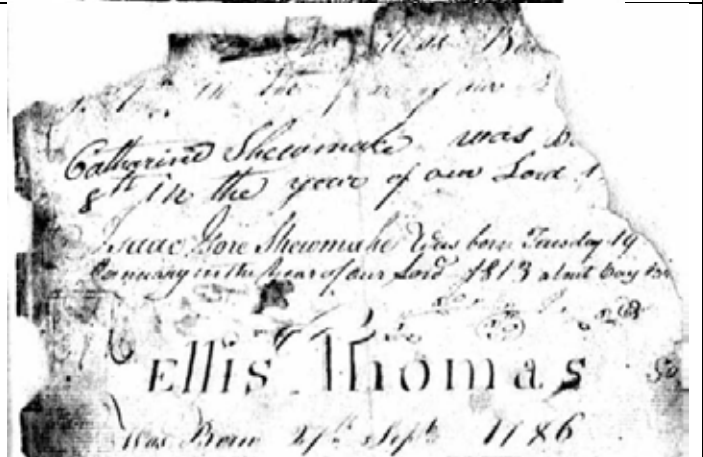 was B
in the year of our
Catharine Shewmake was b
8th in the year of our Lord 1
Isaac Gore Shewmake Was born Tuesday 19
January in the Year of our Lord 1813 about Day
Ellis Thomas
Was Born 27th Sept 1786